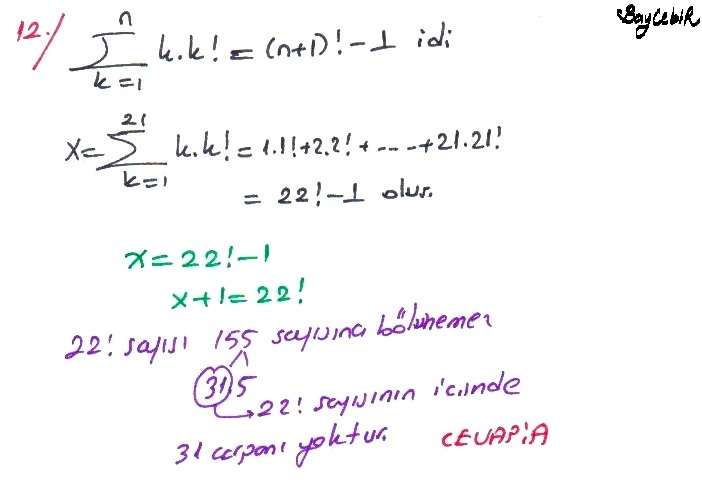 BayCebiR
12./ \sum_{k=1}^{n} k.k! = (n+1)! - 1 idi
x = \sum_{k=1}^{21} k.k! = 1.1! + 2.2! + ---- + 21.21!
= 22! - 1 olur.
x = 22! - 1
x + 1 = 22!
22! sayısı 155 sayısına bölünemez
31 5
22! sayısının içinde
31 çarpanı yoktur. CEVAP:A